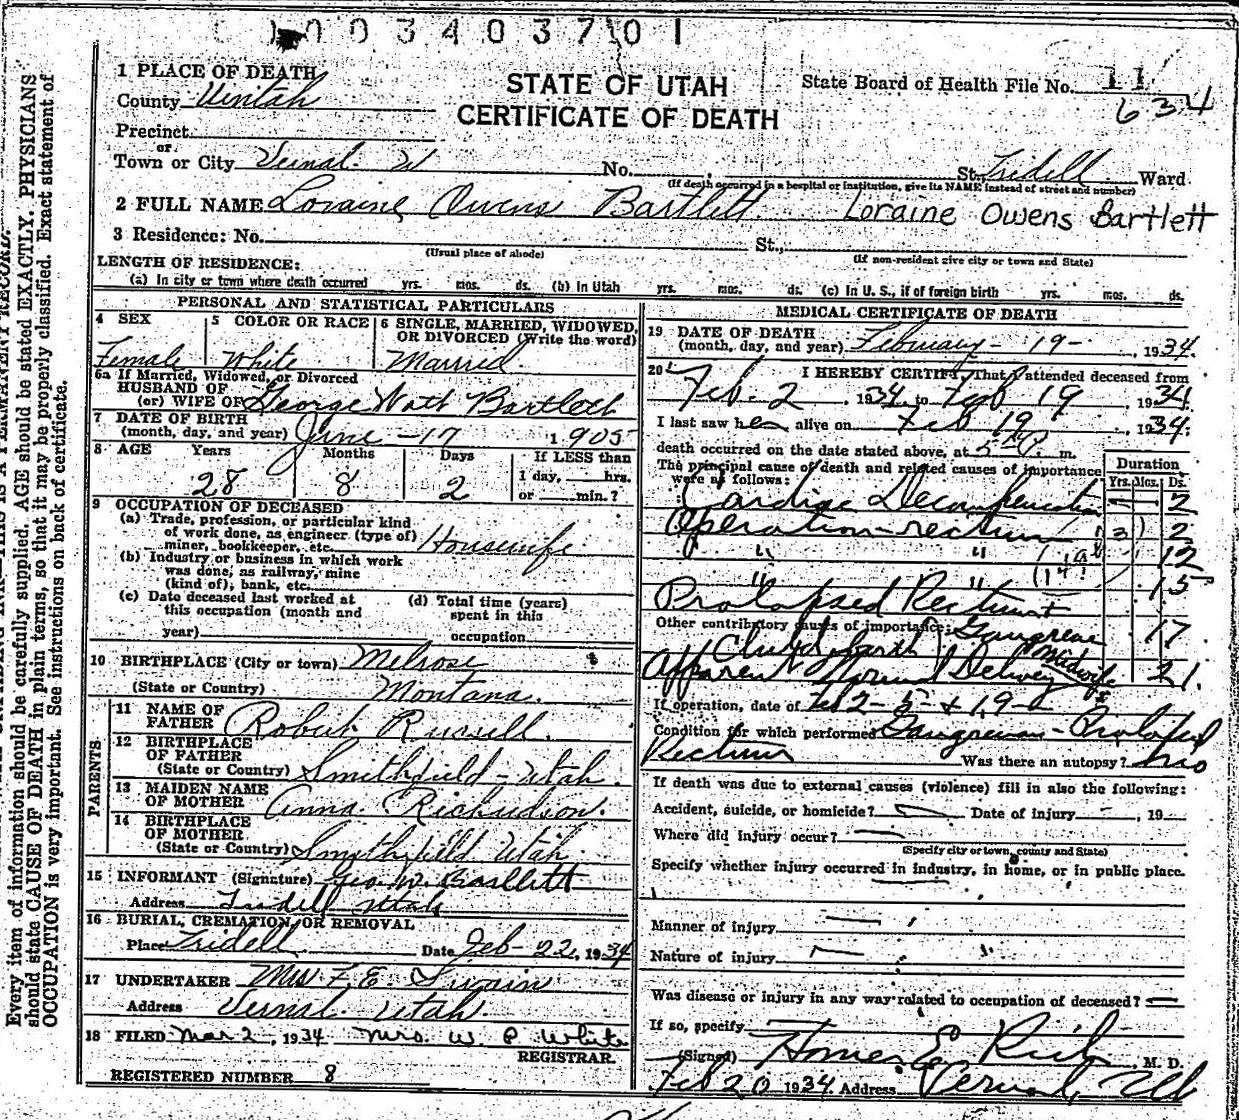 1003403701
1 PLACE OF DEATH
STATE OF UTAH
CERTIFICATE OF DEATH
State Board of Health File No. 11
634
County Uintah
Precinct
or
Town or City Vernal. Ut No. St., Tridell Ward
(If death occurred in a hospital or institution, give its NAME instead of street and number)
2 FULL NAME Loraine Owens Bartlett Loraine Owens Bartlett
3 Residence: No. St.,
(Usual place of abode) (If non-resident give city or town and State)
LENGTH OF RESIDENCE:
(a) In city or town where death occurred yrs. mos. ds. (b) In Utah yrs. mos. ds. (c) In U. S., if of foreign birth yrs. mos. ds.
PERSONAL AND STATISTICAL PARTICULARS
4 SEX 5 COLOR OR RACE 6 SINGLE, MARRIED, WIDOWED,
OR DIVORCED (Write the word)
Female White Married
6a If Married, Widowed, or Divorced
HUSBAND OF
(or) WIFE OF George Watt Bartlett
7 DATE OF BIRTH
(month, day, and year) June - 17 1905
8 AGE Years Months Days If LESS than
1 day, hrs.
28 8 2 or min.?
9 OCCUPATION OF DECEASED
(a) Trade, profession, or particular kind
of work done, as engineer (type of)
miner, bookkeeper, etc. Housewife
(b) Industry or business in which work
was done, as railway, mine
(kind of), bank, etc.
(c) Date deceased last worked at
this occupation (month and
year)
(d) Total time (years)
spent in this
occupation
10 BIRTHPLACE (City or town) Melrose
(State or Country) Montana
PARENTS
11 NAME OF
FATHER Robert Russell.
12 BIRTHPLACE
OF FATHER
(State or Country) Smithfield - Utah
13 MAIDEN NAME
OF MOTHER Anna Richardson.
14 BIRTHPLACE
OF MOTHER
(State or Country) Smithfield Utah
15 INFORMANT (Signature) Geo. W. Bartlett
Address Tridell Utah
16 BURIAL, CREMATION, OR REMOVAL
Place Tridell Date Feb - 22, 1934
17 UNDERTAKER Mrs F. E. Swain
Address Vernal Utah
18 FILED Mar 2, 1934 Mrs. W. P. White
REGISTRAR.
REGISTERED NUMBER 8
MEDICAL CERTIFICATE OF DEATH
19 DATE OF DEATH
(month, day, and year) February - 19 - , 1934.
20 I HEREBY CERTIFY, That I attended deceased from
Feb. 2 1934, to Feb 19, 1934
I last saw her alive on Feb 19, 1934:
death occurred on the date stated above, at 5 m.
The principal cause of death and related causes of importance
were as follows:
Duration
Yrs. Mos. Ds.
Cardiac Decompensation 2
Operation - rectum 3) 2
" " 12
" " 15
Prolapsed Rectum +
Other contributory causes of importance: Gangrene 17
Child birth
Apparent Normal Delivery Midwife 21.
If operation, date of Feb 2 - 5 - + 19 -
Condition for which performed Gangrenous - Prolapsed
Rectum Was there an autopsy? no
If death was due to external causes (violence) fill in also the following:
Accident, suicide, or homicide? Date of injury , 19
Where did injury occur?
(Specify city or town, county and State)
Specify whether injury occurred in industry, in home, or in public place.
Manner of injury
Nature of injury
Was disease or injury in any way related to occupation of deceased?
If so, specify
(Signed) Homer E. Rich, M. D.
Feb 20 1934 Address Vernal, Ut
Every item of information should be carefully supplied. AGE should be stated EXACTLY. PHYSICIANS
should state CAUSE OF DEATH in plain terms, so that it may be properly classified. Exact statement of
OCCUPATION is very important. See instructions on back of certificate.